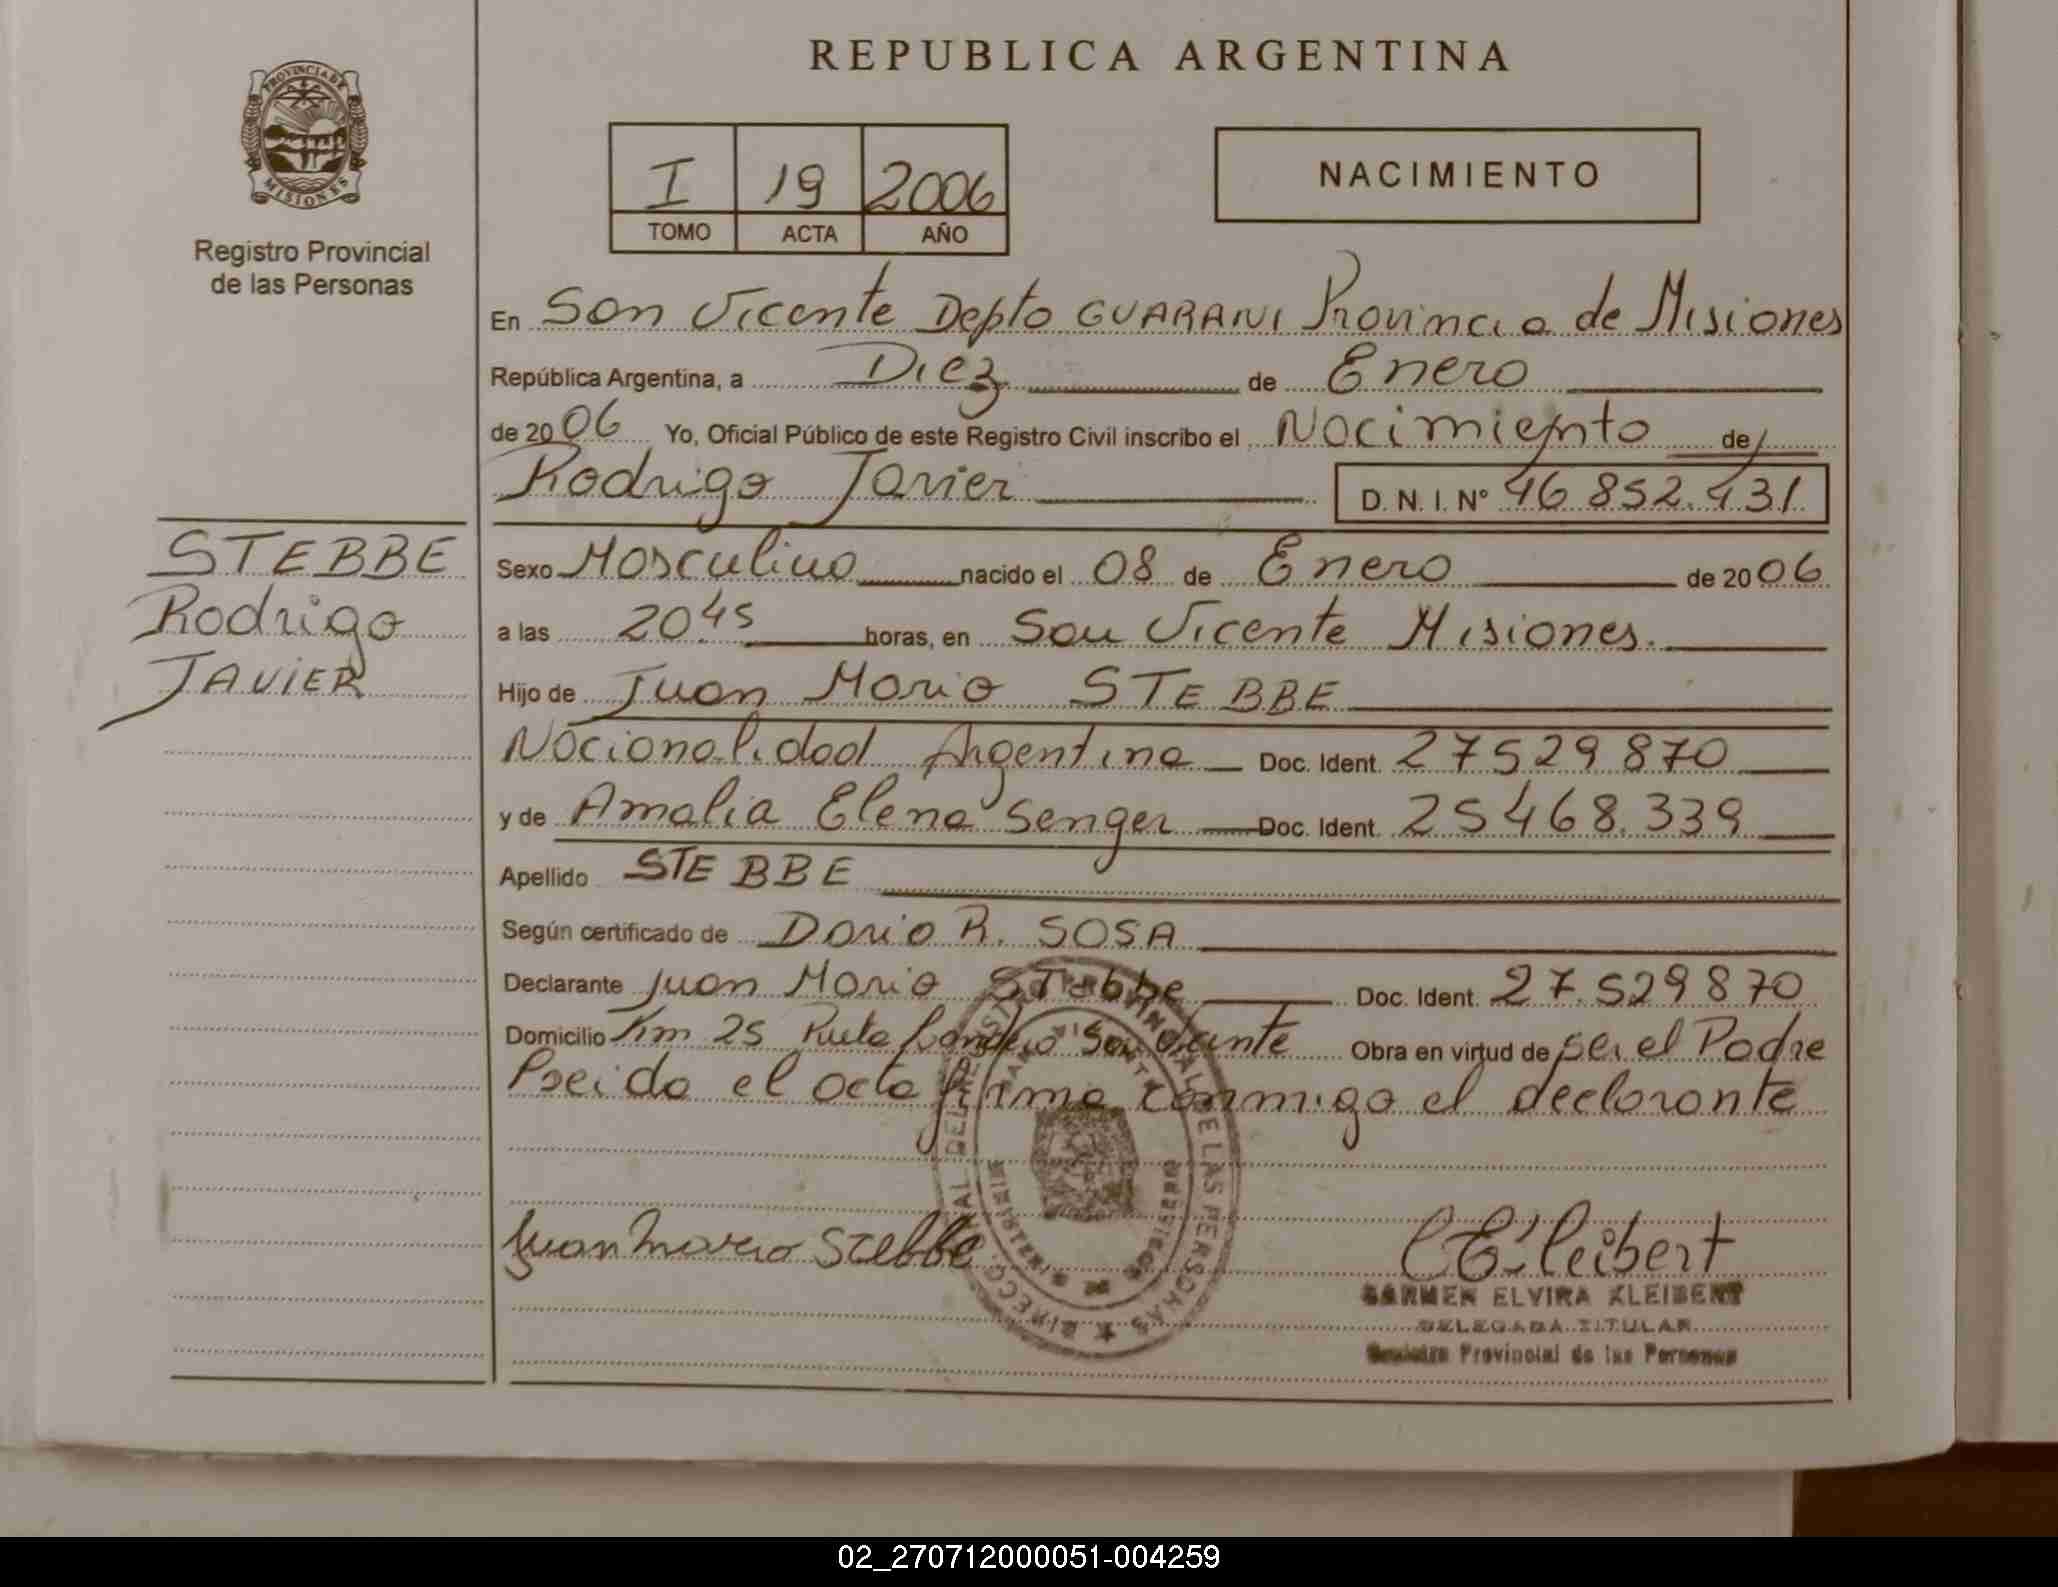 REPUBLICA ARGENTINA
PROVINCIA DE MISIONES
Registro Provincial
de las Personas
I 19 2006
TOMO ACTA AÑO
NACIMIENTO
En San Vicente Depto GUARANI Provincia de Misiones
República Argentina, a Diez de Enero
de 2006 Yo, Oficial Público de este Registro Civil inscribo el Nacimiento de
Rodrigo Javier D. N. I. Nº 46.852.431
STEBBE
Rodrigo
JAVIER
Sexo Masculino nacido el 08 de Enero de 2006
a las 20.45 horas, en San Vicente Misiones.
Hijo de Juan Mario STEBBE
Nacionalidad Argentina Doc. Ident. 27529870
y de Amalia Elena Senger Doc. Ident. 25468.339
Apellido STEBBE
Según certificado de Dario R. SOSA
Declarante Juan Mario STebbe Doc. Ident. 27.529870
Domicilio Km 25 Ruta San Vicente Obra en virtud de ser el Padre
Leido el acta firma conmigo el declarante
Juan Mario Stebbe
CEKleibert
CARMEN ELVIRA KLEIBERT
DELEGADA TITULAR
Registro Provincial de las Personas
02_270712000051-004259